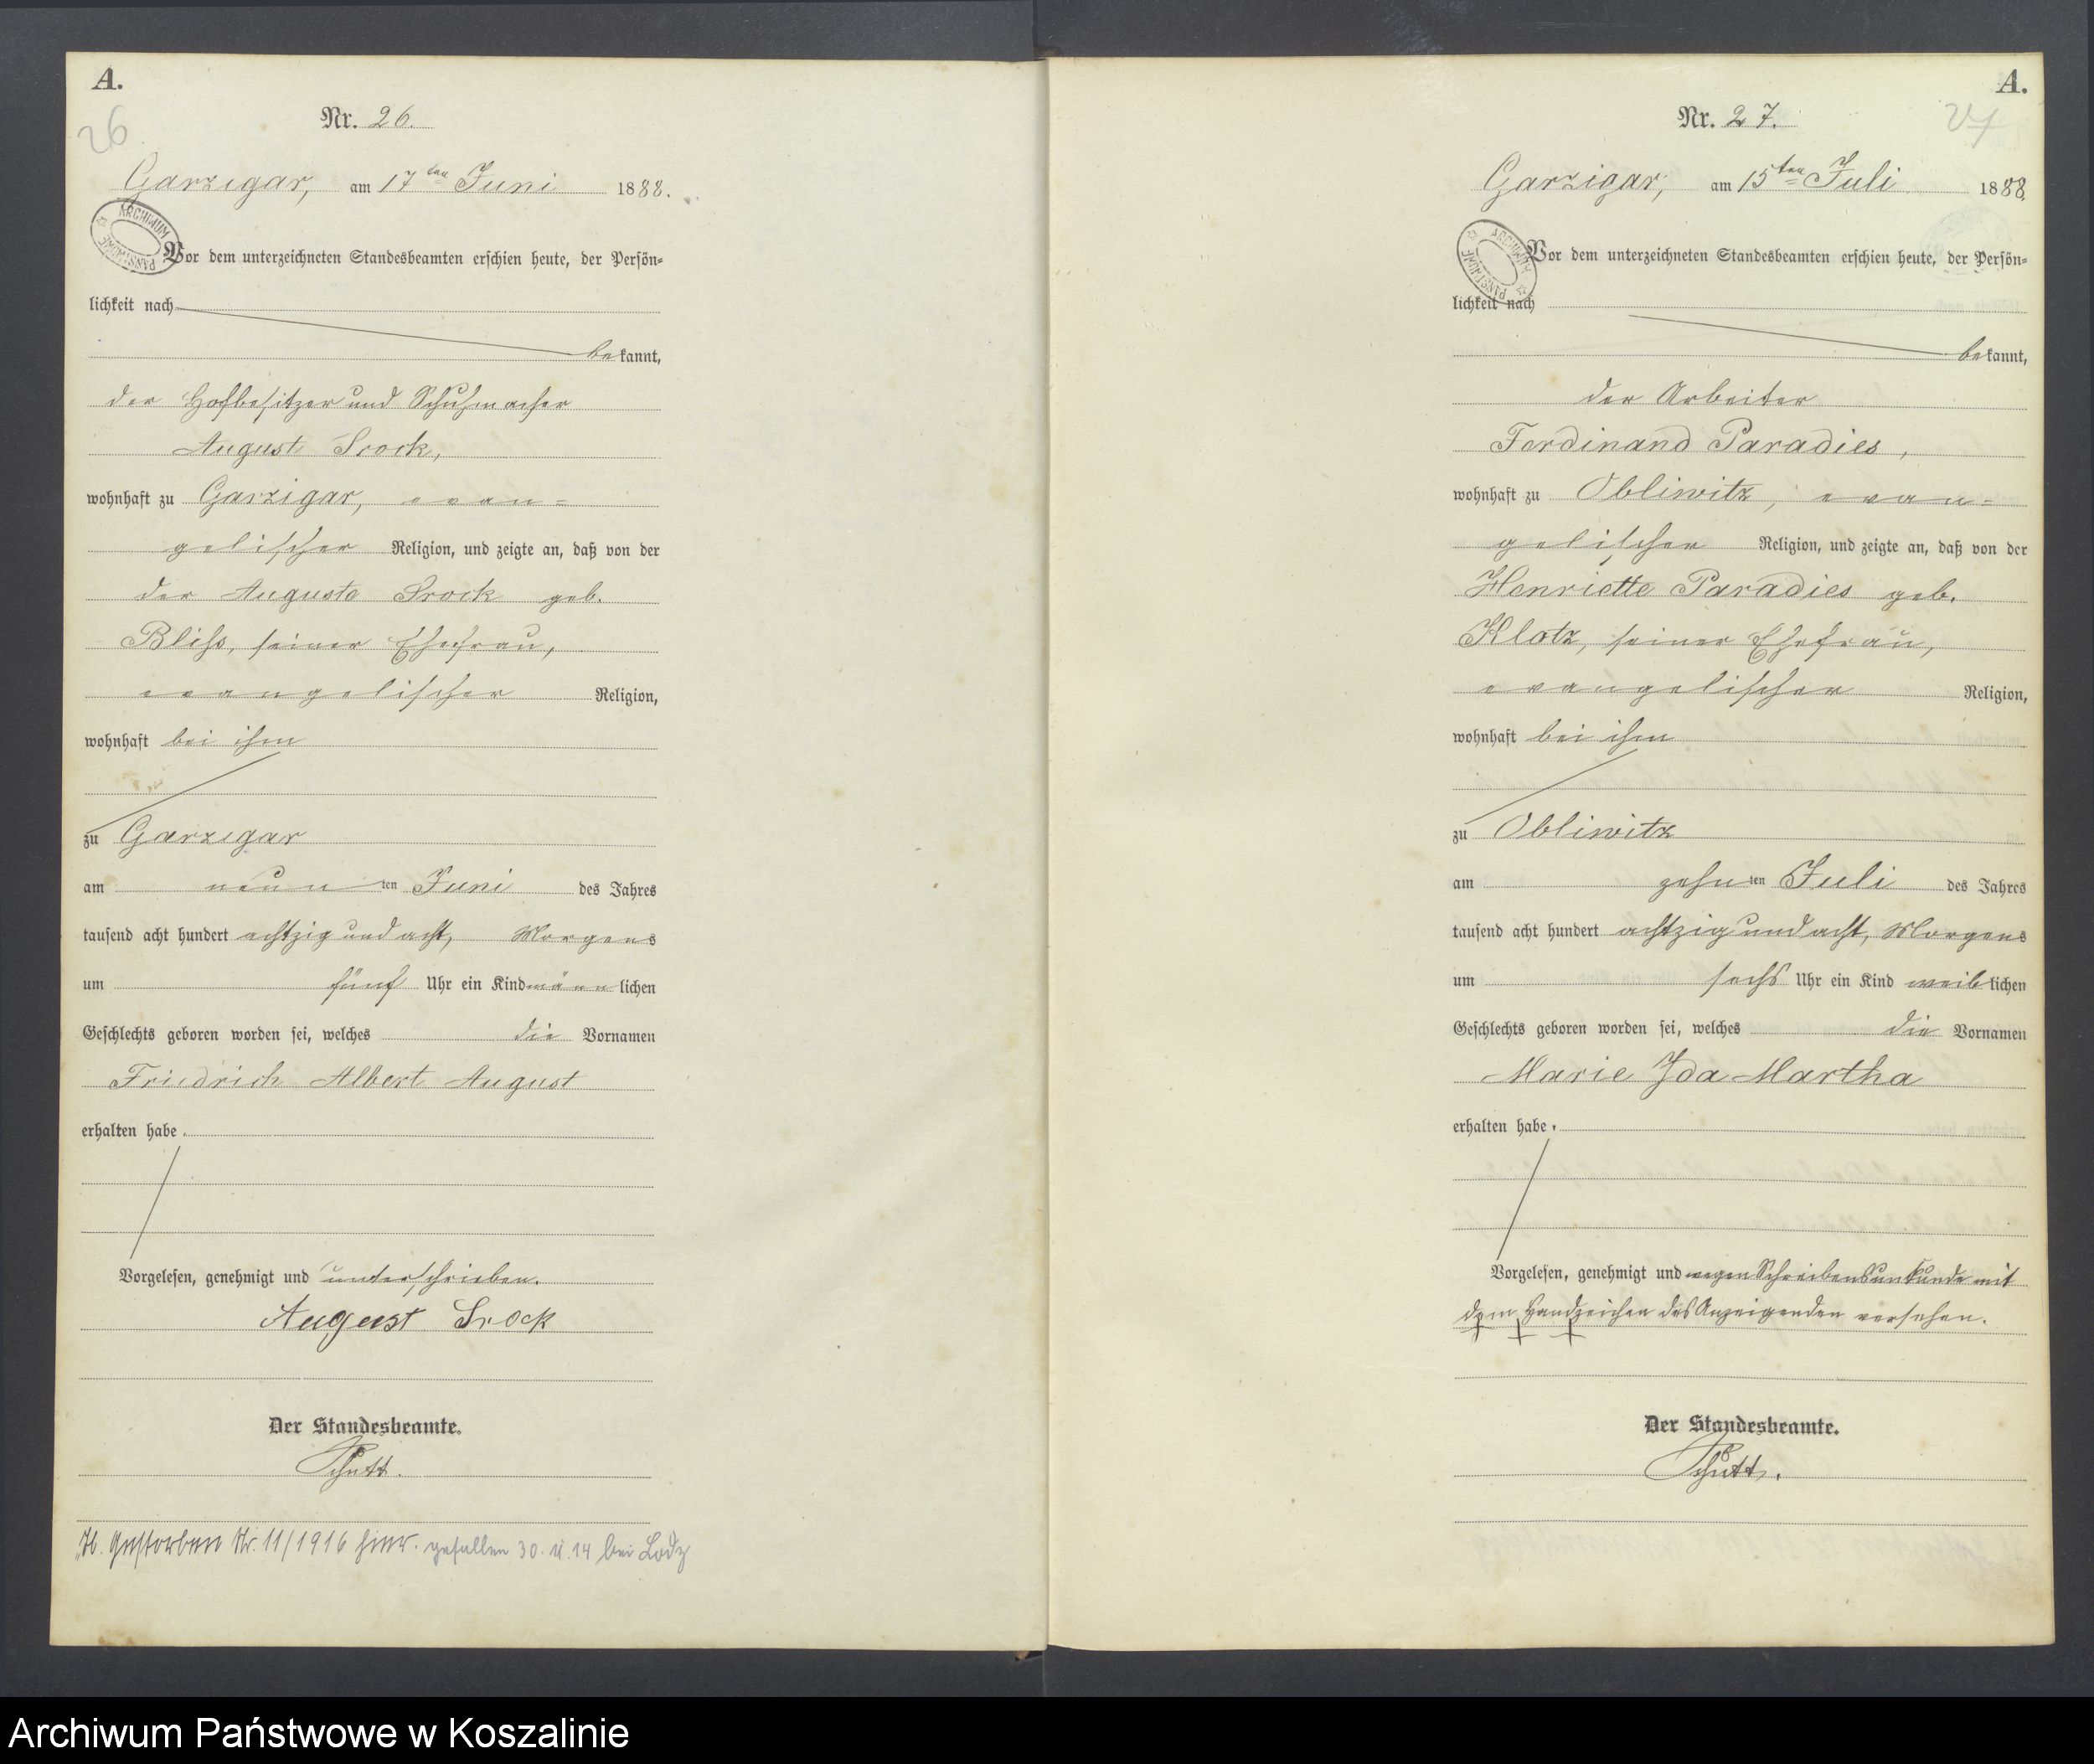 A.
26
Nr. 26.
Garzigar, am 17ten Juni 1888.
ARCHIWUM PAŃSTWOWE
Vor dem unterzeichneten Standesbeamten erschien heute, der Persön=
lichkeit nach
bekannt,
der Hofbesitzer und Schuhmacher
August Srock,
wohnhaft zu Garzigar, evan=
gelischer Religion, und zeigte an, daß von der
der Auguste Srock geb.
Bliss, seiner Ehefrau,
evangelischer Religion,
wohnhaft bei ihm
zu Garzigar
am neunten Juni des Jahres
tausend acht hundert achtzig und acht, Morgens
um fünf Uhr ein Kind männlichen
Geschlechts geboren worden sei, welches die Vornamen
Friedrich Albert August
erhalten habe.
Vorgelesen, genehmigt und unterschrieben.
August Srock
Der Standesbeamte.
Schütt.
Gestorben Nr. 11/1916 hier. gefallen 30. 11. 14 bei Lodz
A.
27
Nr. 27.
Garzigar, am 15ten Juli 1888.
ARCHIWUM PAŃSTWOWE
Vor dem unterzeichneten Standesbeamten erschien heute, der Persön=
lichkeit nach
bekannt,
der Arbeiter
Ferdinand Paradies,
wohnhaft zu Obliwitz, evan=
gelischer Religion, und zeigte an, daß von der
Henriette Paradies geb.
Klotz, seiner Ehefrau,
evangelischer Religion,
wohnhaft bei ihm
zu Obliwitz
am zehnten Juli des Jahres
tausend acht hundert achtzig und acht, Morgens
um sechs Uhr ein Kind weiblichen
Geschlechts geboren worden sei, welches die Vornamen
Marie Ida Martha
erhalten habe.
Vorgelesen, genehmigt und wegen Schreibensunkunde mit
dem Handzeichen des Anzeigenden versehen.
+ + +
Der Standesbeamte.
Schütt.
Archiwum Państwowe w Koszalinie